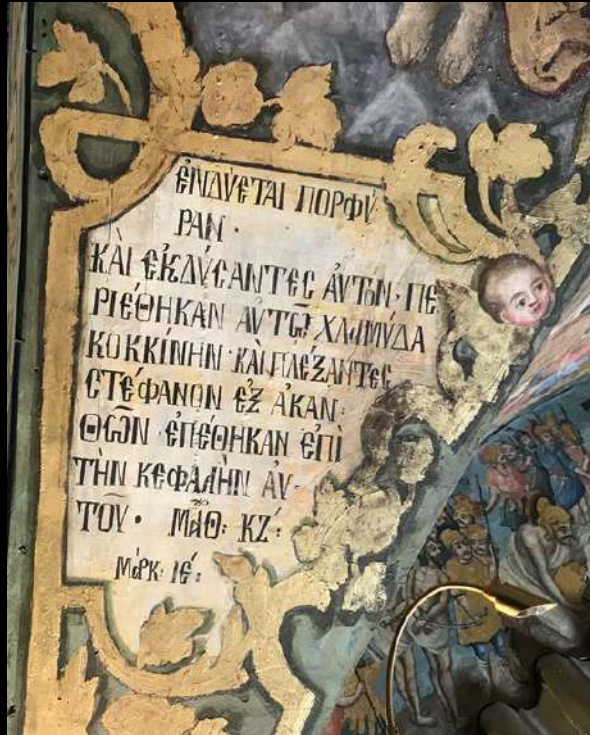 ἘΝΔΎΕΤΑΙ ΠΟΡΦΎ
ΡΑΝ ·
ΚΑῚ ἘΚΔΎϹΑΝΤΕϹ ἈΥΤῸΝ · ΠΕ
ΡΙΈΘΗΚΑΝ ἈΥΤΩ͂ ΧΛΑΜΎΔΑ
ΚΟΚΚΊΝΗΝ · ΚΑῚ ΠΛΈΞΑΝΤΕϹ
ϹΤΈΦΑΝΟΝ ἘΞ ἈΚΑΝ ·
ΘΩ͂Ν ἘΠΈΘΗΚΑΝ ἘΠῚ
ΤῊΝ ΚΕΦΑΛῊΝ ἈΥ-
ΤΟΥ͂ · ΜΑΘ : ΚΖ΄ :
ΜΆΡΚ : ΙΕ΄ :